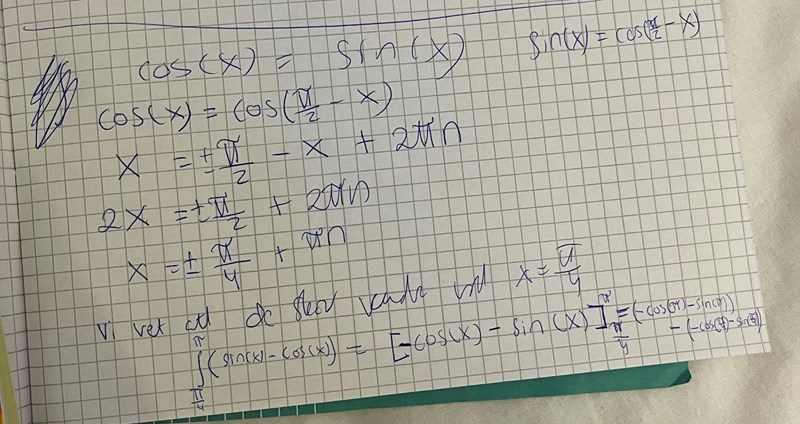 cos(x) = sin(x)
sin(x) = cos(π/2 - x)
cos(x) = cos(π/2 - x)
x = ±π/2 - x + 2πn
2x = ±π/2 + 2πn
x = ± π/4 + πn
Vi vet att de x = π/4
∫_{π/4}^{π} (sin(x) - cos(x)) = [-cos(x) - sin(x)]_{π/4}^{π} = (-cos(π) - sin(π))
- (-cos(π/4) - sin(π/4))